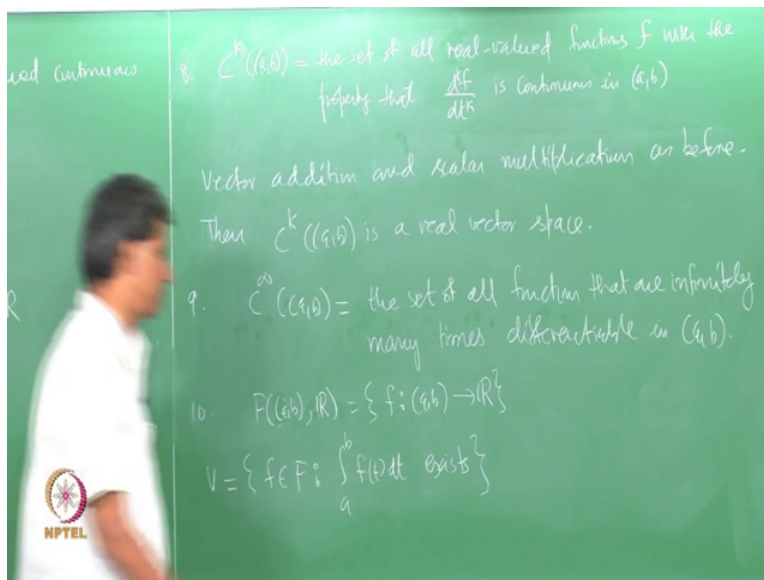 ued continuous
8. C^k((a,b)) = the set of all real-valued functions f with the
property that d^kf/dt^k is continuous in (a,b)
Vector addition and scalar multiplication as before.
Then C^k((a,b)) is a real vector space.
R
9. C^∞((a,b)) = the set of all function that are infinitely
many times differentiable in (a,b).
10. F((a,b), ℝ) = { f : (a,b) → ℝ }
V = { f ∈ F : ∫_a^b f(t)dt exists }
NPTEL